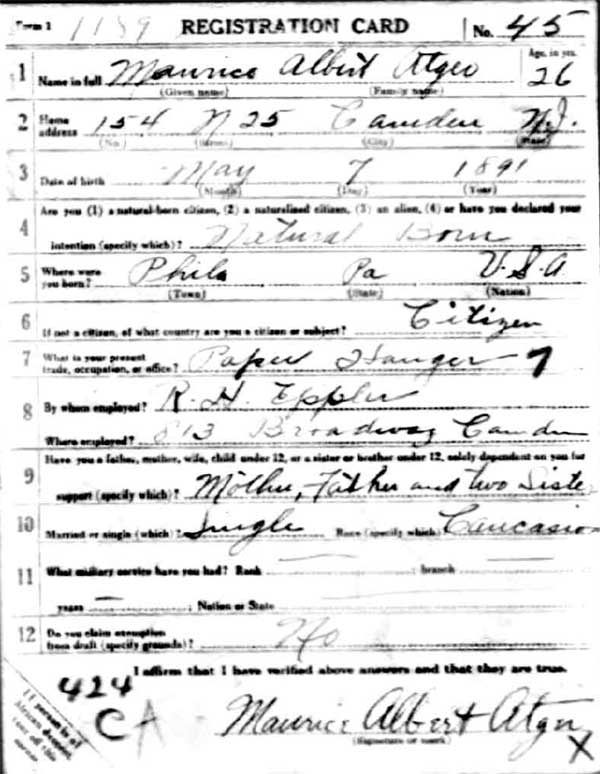 Form 1 1189 REGISTRATION CARD No. 45
1 Name in full Maurice Albert Atger Age, in yrs. 26
(Given name) (Family name)
2 Home address 154 N 25 Camden N.J.
(No.) (Street) (City) (State)
3 Date of birth May 7 1891
(Month) (Day) (Year)
4 Are you (1) a natural-born citizen, (2) a naturalized citizen, (3) an alien, (4) or have you declared your
intention (specify which)? Natural Born
5 Where were you born? Phila Pa U.S.A
(Town) (State) (Nation)
6 If not a citizen, of what country are you a citizen or subject? Citizen
7 What is your present trade, occupation, or office? Paper Hanger 7
8 By whom employed? R. H. Eppler
Where employed? 813 Broadway Camden
9 Have you a father, mother, wife, child under 12, or a sister or brother under 12, solely dependent on you for
support (specify which)? Mother, Father and two Siste
10 Married or single (which)? Single Race (specify which) Caucasion
11 What military service have you had? Rank branch
years ; Nation or State
12 Do you claim exemption from draft (specify grounds)? No
I affirm that I have verified above answers and that they are true.
424
CA Maurice Albert Atger
(Signature or mark) X
If person is of African descent, tear off this corner